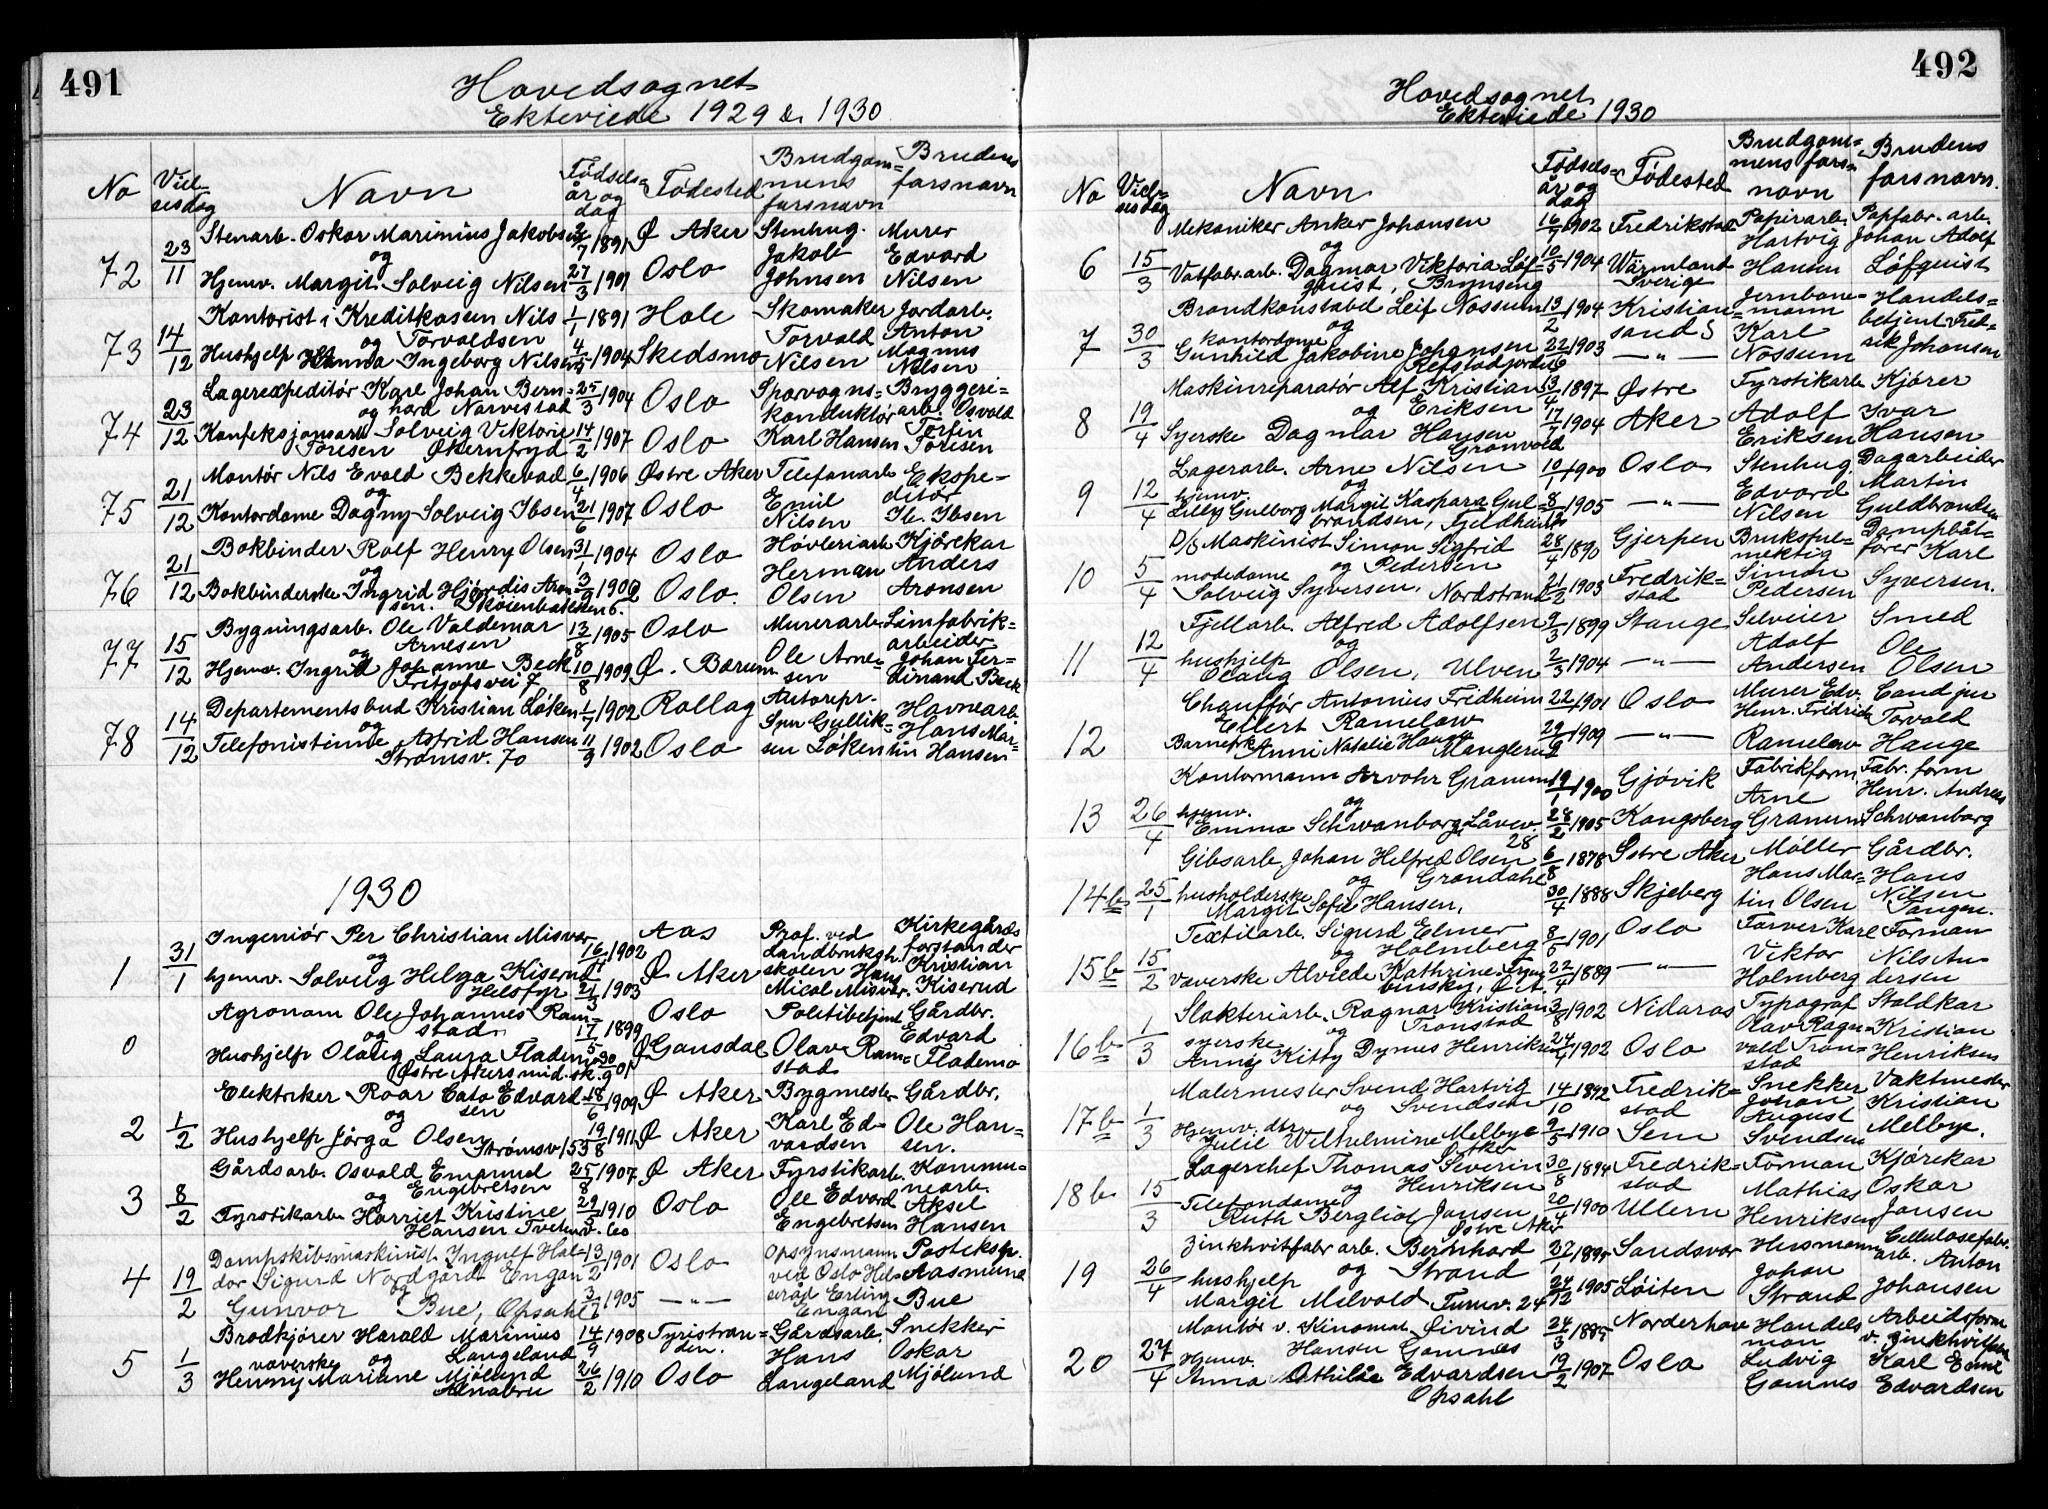 491
Hovedsognet
Ekteviede 1929 & 1930
No
Viel-
sesdag
Navn
Fødsels-
år og
dag
Fødested
Brudgom=
mens
farsnavn
Brudens
farsnavn
72 23/11 Stenarb. Oskar Marinius Jakobsen 7 1891 Ø Aker Stenhug. Murer
og Jakob Edvard
Hjemv. Margit Solveig Nilsen 27/3 1901 Oslo Johnsen Nilsen
73 14/12 Kontorist i Kreditkassen Nils 1/1 1891 Hole Skomaker Jordarb.
og Torvaldsen Torvald Anton
Hushjelp Hanna Ingeborg Nilsen 1904 Skedsmo Nilsen Magnus
Nilsen
74 23/12 Lagerexpeditør Karl Johan Bern= 25/3 1904 Oslo Sporvogns- Bryggeri-
og hard Narvestad konduktør arb. Osvald
Konfeksjonsarb Solveig Viktoria 14/2 1907 Oslo Karl Hansen Torfin
Toresen Økernfryd Toresen
75 21/12 Montør Nils Evald Bekkevad 6/4 1906 Østre Aker Telefonarb Ekspe-
og Emil ditør
Kontordame Dagny Solveig Ibsen 21/6 1907 Oslo Nilsen Ib. Ibsen
76 21/12 Bokbinder Rolf Henry Olsen 31/1 1904 Oslo Høvleriarb Kjørekar
og Herman Anders
Bokbinderske Ingrid Hjørdis Aron= 3/9 1909 Oslo. Olsen Aronsen
sen. Skøienbakken 6.
77 15/12 Bygningsarb. Ole Valdemar 13/8 1905 Oslo Murerarb. Limfabrik-
og Arnesen Ole Arne- arbeider
Hjemv. Ingrid Johanne Beck 10/8 1909 Ø. Bærum sen Johan Fer-
Fritjofsvei 7 dinand Beck
78 14/12 Departementsbud Kristian Løken 1/7 1902 Rollag Autorepr. Havnearb.
og Syver Gullik= Hans Mar=
Telefonistinne Astrid Hansen 11/9 1902 Oslo sen Løken tin Hansen
Strømsv. 70
1930
1 31/1 Ingeniør Per Christian Misvær 16/11 1902 Aas Prof. ved Kirkegårds
og Landbruksh. forstander
hjemv. Solveig Helga Kiserud 21/3 1903 Ø Aker skolen Hans Kristian
Helsfyr Micol Misvær. Kiserud
0 Agronom Ole Johannes Ram= 17/5 1899 Oslo Politibetjent Gårdbr.
og stad Olav Ram= Edvard
Hushjelp Olaug Laura Flademo 30/9 01 Gansdal stad Flademo
Østre Akers mid. sk.
2 1/2 Elektriker Roar Cato Edvard= 18/6 1909 Ø Aker Bygmester Gårdbr.
og sen Karl Ed- Ole Han=
Hushjelp Jørga Olsen 19/8 1911 Ø Aker vardsen sen.
Strømsv 153
3 8/2 Gårdsarb. Osvald Emanuel 25/8 1907 Ø Aker Fyrstikarb. Kommu-
og Engebretsen Ole Edvard nearb.
Fyrstikarb Harriet Kristine 29/5 1910 Oslo Engebretsen Aksel
Hansen Tvetenv. 60 Hansen
4 19/2 Dampskibsmaskinist Ingulf Hal= 13/2 1901 Oslo Opsynsmann Posteksp.
dor Sigurd Nordgård Engan ved Oslo Hel= Aasmund
og seråd Erling Bue
Gunvor Bue, Opsahl 3/7 1905 —"— Engan
5 1/3 Brødkjører Harald Marinius 14/9 1908 Tyristran= Gårdsarb. Snekker
og Langeland den. Hans Oskar
væverske
Henny Mariane Mjølund 26/2 1910 Oslo Langeland Mjølund
Alnabru
492
Hovedsognet
Ekteviede 1930
No
Viel-
sesdag
Navn
Fødsels=
år og
dag
Fødested
Brudgom-
mens fars=
navn
Brudens
farsnavn.
6 15/3 Mekaniker Anker Johansen 16/7 1902 Fredrikstad Papirarb. Papfabr. arb.
og Hartvig Johan Adolf
Vatfabr.arb. Dagmar Viktoria Löf= 10/5 1904 Wärmland Hansen Löfquist
quist, Brynseng Sverige
7 30/3 Brandkonstabel Leif Nossum 13/2 1904 Kristian= Jernbane= Handels=
og sand S mann betjent Fred=
kontordame Karl rik Johansen
Gunhild Jakobine Johansen 22/6 1903 —"— Nossum
Refstadfjorden
8 19/4 Maskinreparatør Alf Kristian 3/4 1897 Østre Fyrstikarb Kjører
og Eriksen Adolf Ivar
Syerske Dagmar Hansen 17/7 1904 Aker Eriksen Hansen
Grønvold
9 12/4 Lagerarb. Arne Nilsen 10/1 1900 Oslo Stenhug. Dagarbeider
hjemv. og Edvard Martin
Lilly Gulborg Margit Kaspara Gul= 8/12 1905 —"— Nilsen Guldbrandsen
brandsen, Fjeldheim
10 5/4 D/S Maskinist Simon Sigfrid 28/4 1890 Gjerpen Bruksful- Dampbåt=
og Pedersen mektig fører Karl
modedame Simon Syversen.
Solveig Syversen, Nordstrand 21/2 1903 Fredrik= Pedersen
stad
11 12/4 Fjellarb. Alfred Adolfsen 9/3 1899 Stange Selveier Smed
og Adolf Ole
hushjelp Olaug Olsen, Ulven 2/3 1904 —"— Andersen Olsen
12 Chauffør Antonius Fridheim 22/ 1901 Oslo Murer Edv. Cand jur
Eilert Ramelow Henr. Fridrich Torvald
Barnepl. Anni Natalie Hauge 29/9 1909 —"— Ramelow Hauge
Manglerud
13 26/4 Kontormann Arvohr Granum 19/1 1900 Gjøvik Fabrikform. Fabr. form
og Arne Henr. Andreas
hjemv.
Emma Schwanborg Låvev. 28/2 1905 Kongsberg Granum Schwanborg
28
14b 25/1 Gibsarb. Johan Helfred Olsen 6/8 1878 Østre Aker Møller Gårdbr.
og Grøndahl Hans Mar= Hans
husholderske tin Olsen Nilsen
Margit Sofie Hansen, 30/4 1888 Skjeberg Tangen.
15b 15/2 Textilarb. Sigurd Elmer 8/5 1901 Oslo Farver Karl Forman
og Holmberg Viktor Nils An-
Væverske Alviede Kathrine 22/4 1889 —"— Holmberg dersen
16b 1/3 Slakteriarb. Ragnar Kristian 3/8 1902 Nidaros Typograf Staldkar
og Tronstad Olav Ragn= Kristian
syerske vald Tron= Henriksen
Anny Kitty Dymes Henriksen 24/4 1902 Oslo stad
17b 1/3 Malermester Svend Hartvig 14/10 1892 Fredrik= Snekker Vaktmester
og Svendsen stad Johan Kristian
Hjemv. dtr August Melbye.
Julie Wilhelmine Melbye 9/5 1910 Sem Svendsen
18b 15/3 Lagerchef Thomas Severin 30/8 1894 Fredrik= Forman Kjørekar
og Henriksen stad Mathias Oskar
Telefondame
Ruth Bergliot Jansen 20/4 1900 Ullern Henriksen Jansen
Østre Aker
19 26/4 Zinkhvitfabr arb. Bernhard 1895 Sandsvær Husmann Cellulosefabr.
og Strand Johan arb. Anton
hushjelp
Margit Milvold Turnv. 24 24/12 1905 Løiten Strand Johansen
20 27/4 Montør v. Kinomat. Øivind 24/3 1885 Norderhov Handels Arbeidsform
Hansen Gomnes man v. Zinkhvitfabr
Hjemv. Ludvig Karl Emil
Anna Mathilde Edvardsen 19/2 1907 Oslo Gomnes Edvardsen
Opsahl